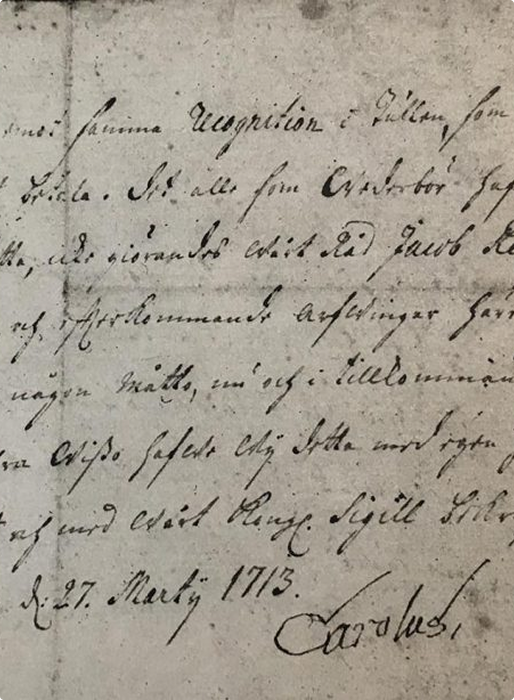 samma Recognition i Tullen, som
betala. Det alle som Wederbör haf
tta, icke giörandes Wårt Råd Jacob Re
och efterkommande Arfwingar här
någon Måtto, nu och i tillkommān
ra Wißo hafwe Wÿ detta med egen
och med Wårt Kongl. Sigill bekr
d: 27. Martÿ 1713.
Carolus.